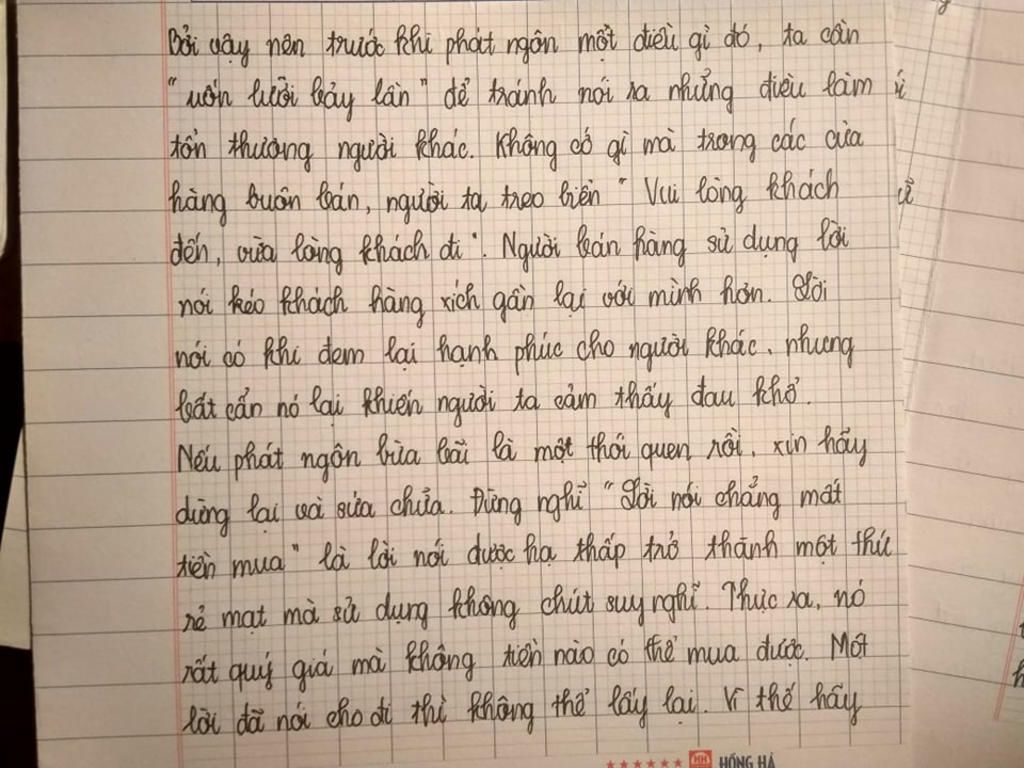 Bởi vậy nên trước khi phát ngôn một điều gì đó, ta cần
"uốn lưỡi bảy lần" để tránh nói ra những điều làm
tổn thương người khác. Không có gì mà trong các cửa
hàng buôn bán, người ta treo biển "Vui lòng khách
đến, vừa lòng khách đi". Người bán hàng sử dụng lời
nói kéo khách hàng xích gần lại với mình hơn. Lời
nói có khi đem lại hạnh phúc cho người khác, nhưng
bất cẩn nó lại khiến người ta cảm thấy đau khổ.
Nếu phát ngôn bừa bãi là một thói quen rồi, xin hãy
dừng lại và sửa chữa. Đừng nghĩ "Lời nói chẳng mất
tiền mua" là lời nói được hạ thấp trở thành một thứ
rẻ mạt mà sử dụng không chút suy nghĩ. Thực ra, nó
rất quý giá mà không tiền nào có thể mua được. Một
lời đã nói cho đi thì không thể lấy lại. Vì thế hãy
HH HỒNG HÀ